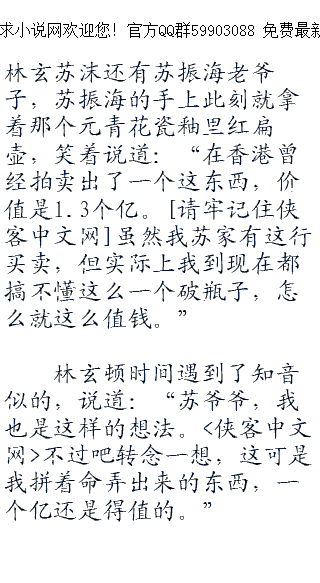 求小说网欢迎您！官方QQ群59903088 免费最新
林玄苏沫还有苏振海老爷
子，苏振海的手上此刻就拿
着那个元青花瓷釉里红扁
壶，笑着说道：“在香港曾
经拍卖出了一个这东西，价
值是1.3个亿。[请牢记住侠
客中文网]虽然我苏家有这行
买卖，但实际上我到现在都
搞不懂这么一个破瓶子，怎
么就这么值钱。”
林玄顿时间遇到了知音
似的，说道：“苏爷爷，我
也是这样的想法。<侠客中文
网>不过吧转念一想，这可是
我拼着命弄出来的东西，一
个亿还是得值的。”